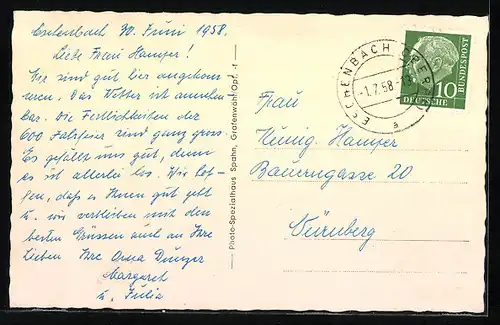 Eschenbach 30. Juni 1958.
Liebe Frau Hamper!
Wir sind gut hier angekom
men. Das Wetter ist annehm
bar. Die Festlichkeiten der
600 Jahrfeier sind ganz gross.
Es gefällt uns gut, denn
es ist allerlei los. Wir hof-
fen, daß es Ihnen gut geht
u. wir verbleiben mit den
besten Grüssen auch an Ihre
Lieben Ihre Anna
Margaret
u. Julia
Photo-Spezialhaus Spahn, Grafenwöhr/Opf.
ESCHENBACH (OBERPF
-1.7.58-
a
10
DEUTSCHE
BUNDESPOST
Frau
Kunig. Hamper
Bauerngasse 20
Nürnberg